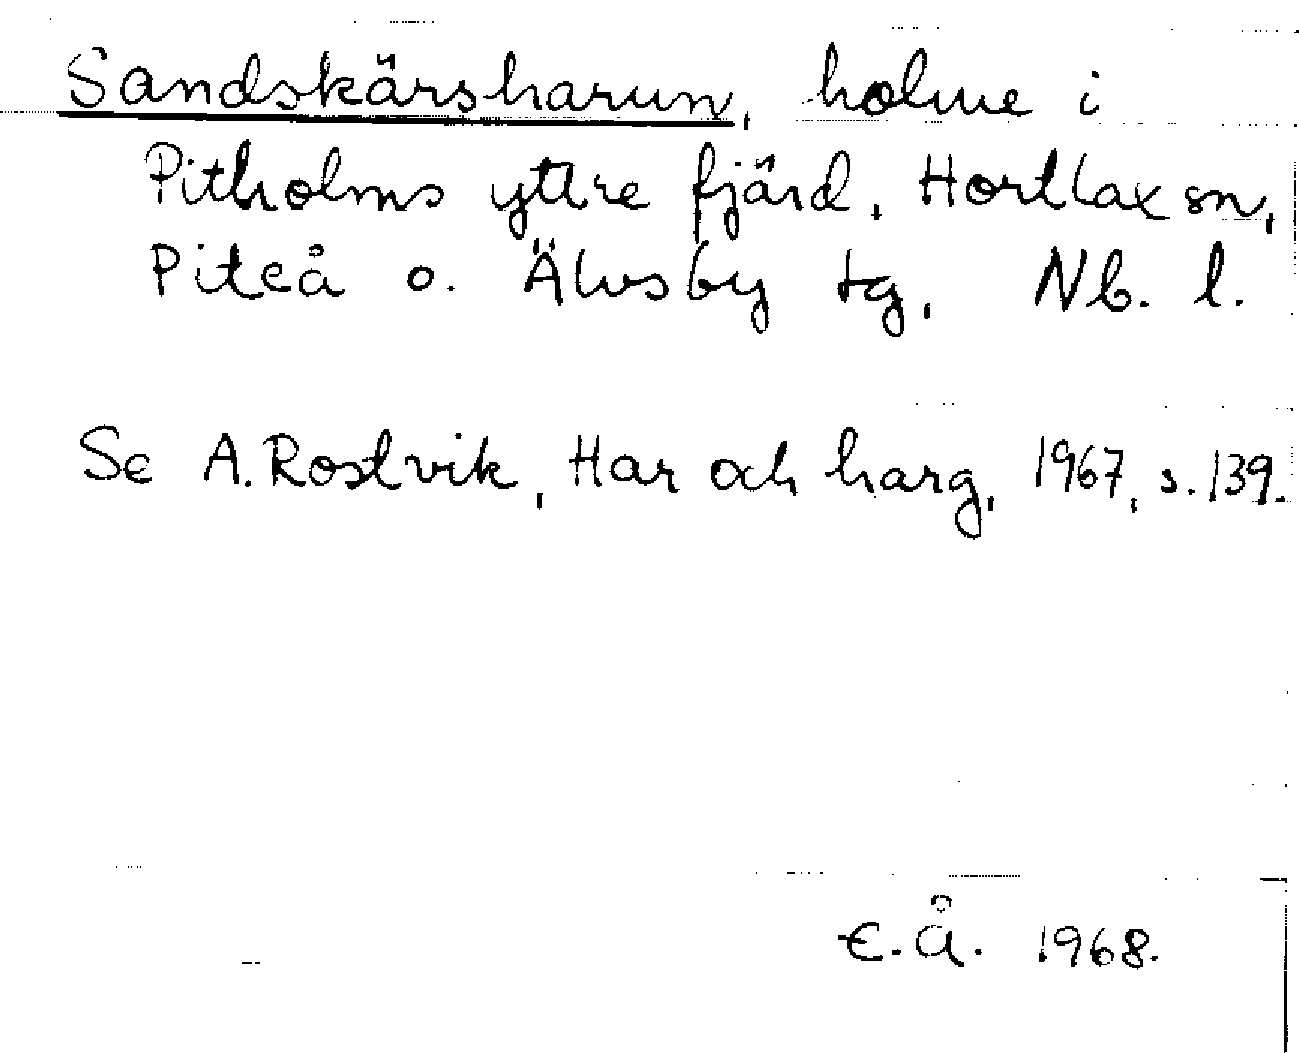 Sandskärsharun, holme i
Pitholms yttre fjärd, Hortlax sn,
Piteå o. Älvsby tg, Nb. l.
Se A. Rostvik, Har och harg, 1967, s. 139.
E.Å. 1968.